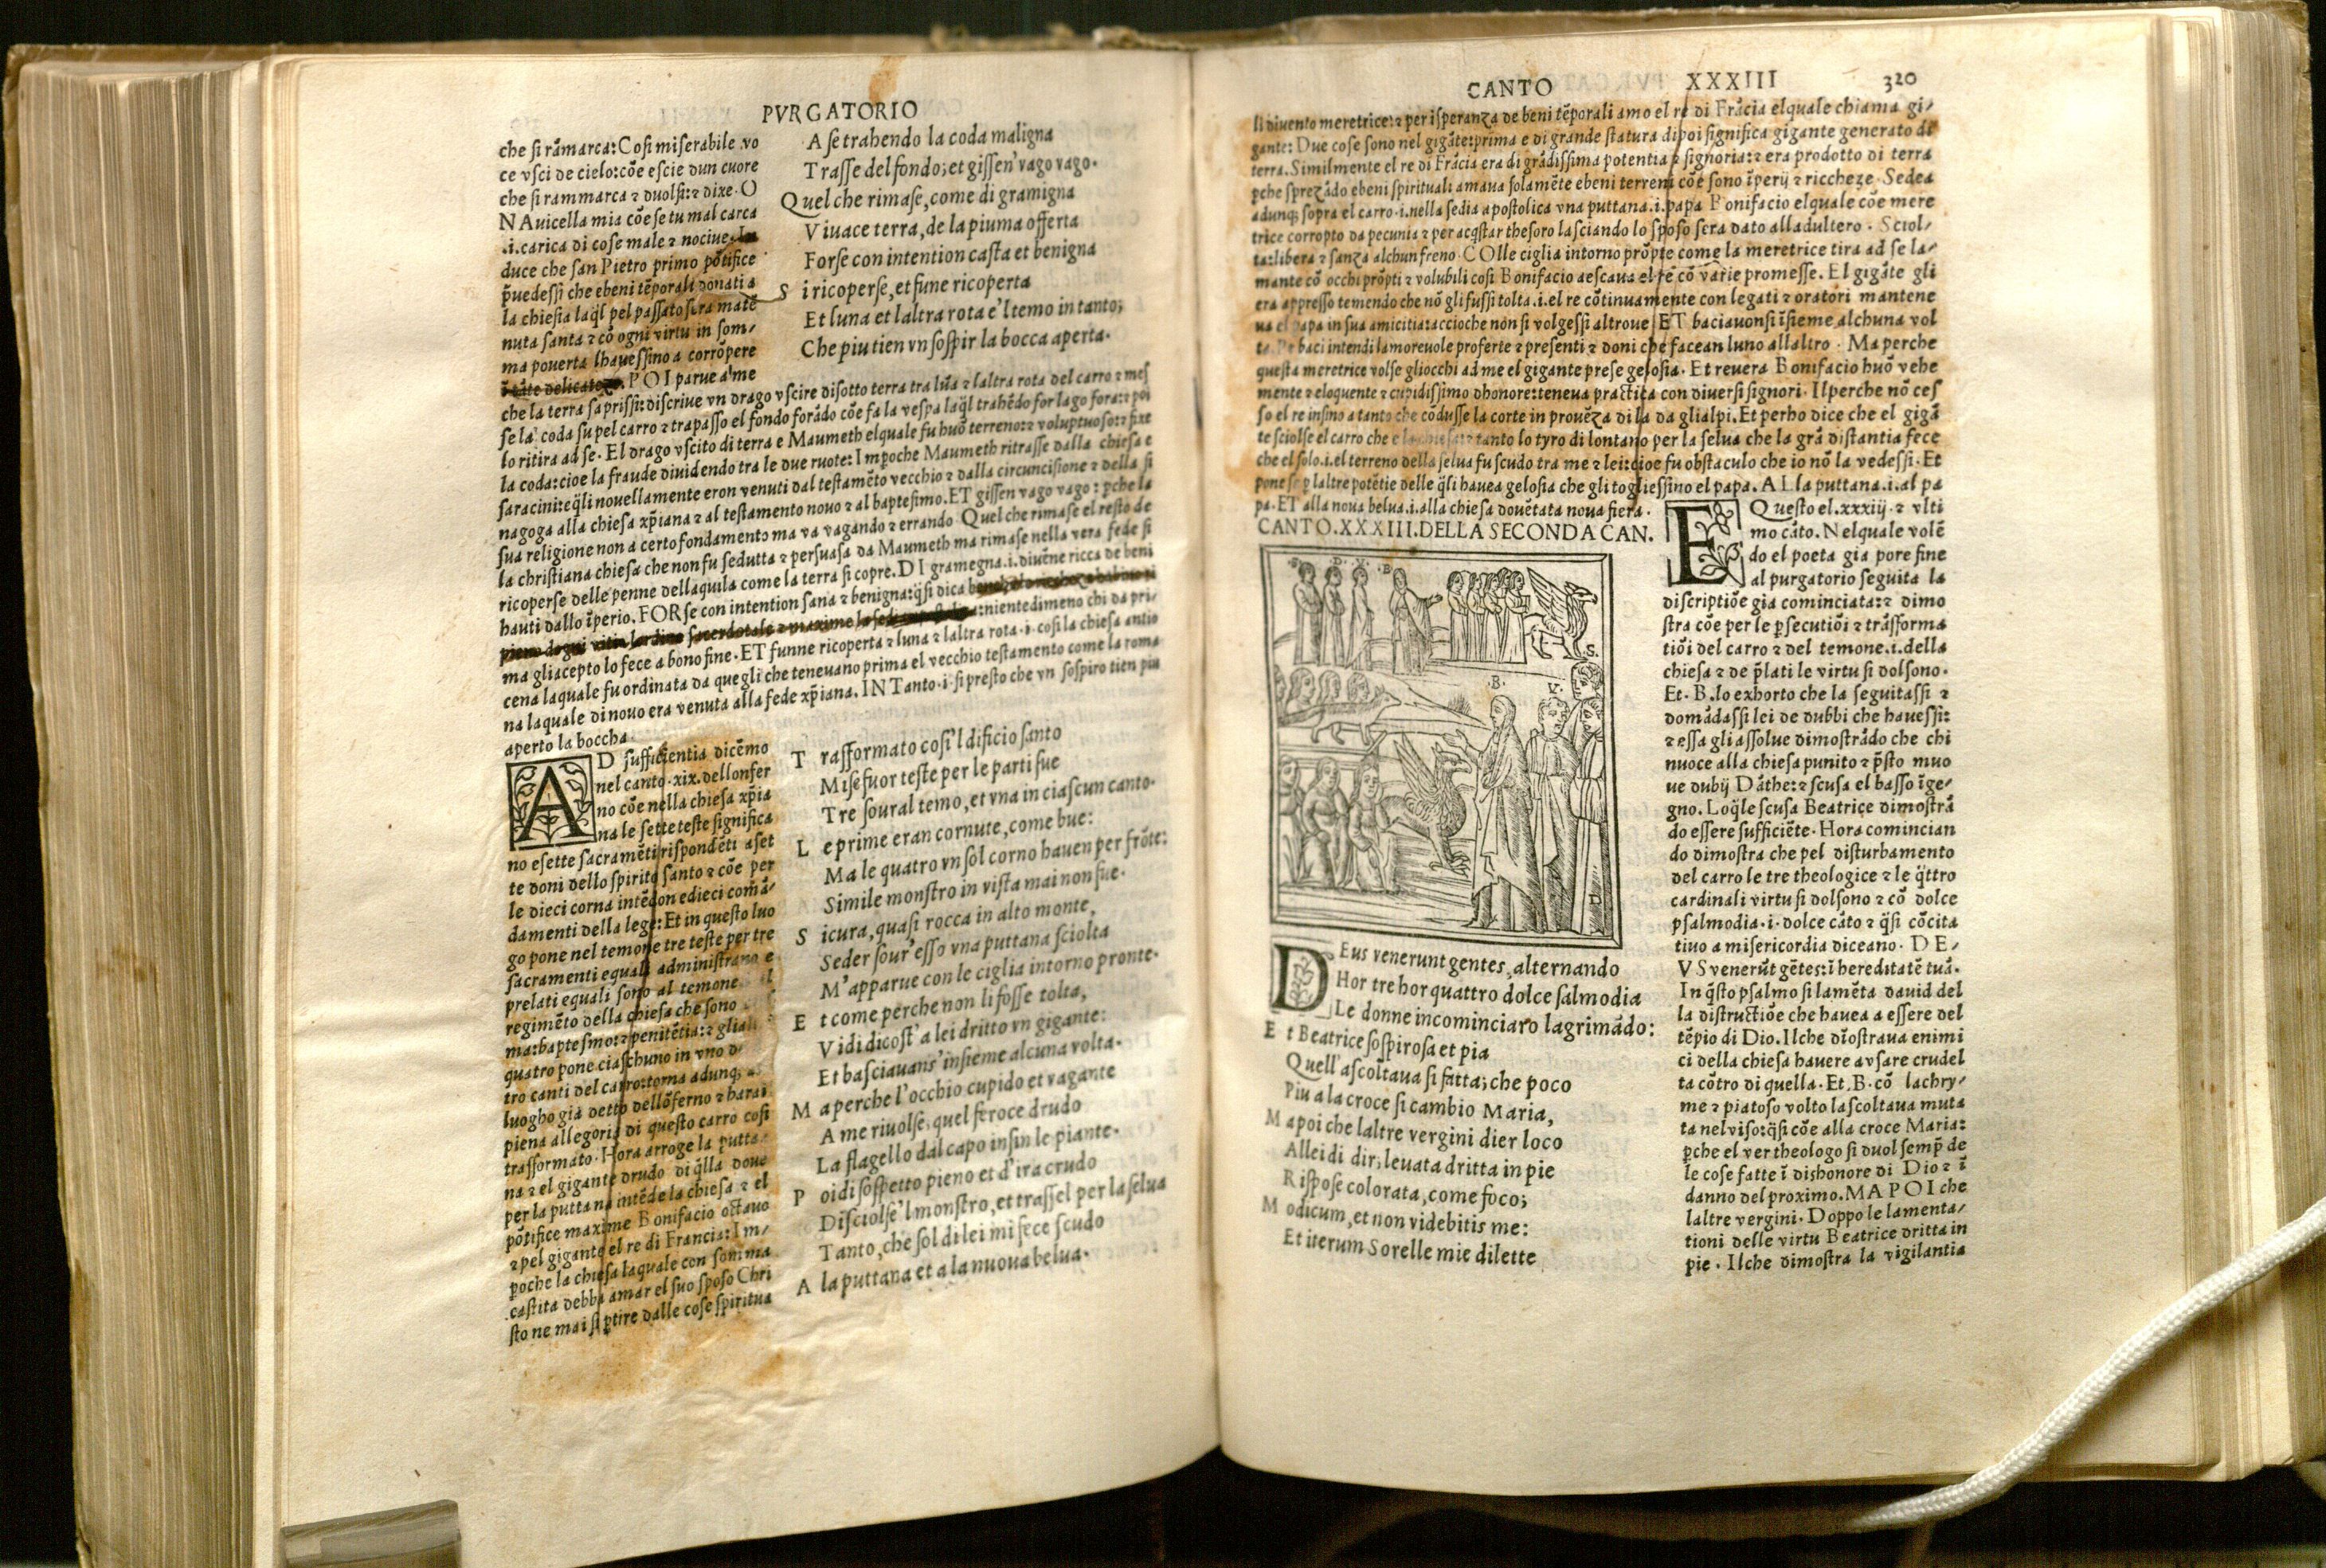 PVRGATORIO
che si rãmarca: Cosi miserabile vo
ce vsci de cielo: cõe escie dun cuore
che si rammarca ⁊ duolsi: ⁊ dixe. O
NAuicella mia cõe se tu mal carca
.i. carica di cose male ⁊ nociue.
duce che san Pietro primo põtifice
p̃uedessi che ebeni tẽporali donati a
la chiesia laq̃l pel passato sera matẽ
nuta santa ⁊ cõ ogni virtu in som/
ma pouerta lhauessino a corrõpere
POI parue a me
A se trahendo la coda maligna
Trasse del fondo; et gissen' vago vago.
Quel che rimase, come di gramigna
Viuace terra, de la piuma offerta
Forse con intention casta et benigna
S i ricoperse, et fune ricoperta
Et luna et laltra rota e'l temo in tanto;
Che piu tien vn sospir la bocca aperta.
che la terra saprissi: discriue vn drago vscire disotto terra tra lũa ⁊ laltra rota del carro ⁊ mes
se la coda su pel carro ⁊ trapasso el fondo forãdo cõe fa la vespa laq̃l trahẽdo for lago fora: ⁊ poi
lo ritira ad se. El drago vscito di terra e Maumeth elquale fu huõ terreno: ⁊ voluptuoso: ⁊ fixe
la coda: cioe la fraude diuidendo tra le due ruote: Impoche Maumeth ritrasse dalla chiesa e
saracini: eq̃li nouellamente eron venuti dal testamẽto vecchio ⁊ dalla circuncisione ⁊ della si
nagoga alla chiesa xp̃iana ⁊ al testamento nouo ⁊ al baptesimo. ET gissen vago vago: pche la
sua religione non a certo fondamento ma va vagando ⁊ errando Quel che rimase el resto de
la christiana chiesa che non fu sedutta ⁊ persuasa da Maumeth ma rimase nella vera fede si
ricoperse delle penne dellaquila come la terra si copre. DI gramegna .i. diuẽne ricca de beni
hauti dallo ĩperio. FORse con intention sana ⁊ benigna: q̃si dica
: nientedimeno chi da pri/
ma gliacepto lo fece a bono fine. ET funne ricoperta ⁊ luna ⁊ laltra rota .i. cosi la chiesa antio
cena laquale fu ordinata da que gli che teneuano prima el vecchio testamento come la roma
na laquale di nouo era venuta alla fede xp̃iana. IN Tanto .i. si presto che vn sospiro tien piu
aperto la boccha.
AD sufficientia dicẽmo
nel canto .xix. dellonfer
no cõe nella chiesa xp̃ia
na le sette teste significa
no esette sacramẽti rispondẽti aset
te doni dello spirito santo ⁊ cõe per
le dieci corna intẽdon edieci comã/
damenti della lege: Et in questo luo
go pone nel temone tre teste per tre
sacramenti equali administrano e
prelati equali sono al temone
regimẽto della chiesa che sono
ma: baptesmo: ⁊ penitẽtia: ⁊ gliali
quatro pone ciaschuno in vno d
tro canti del carro: torna adunq;
luogho gia detto dellõferno ⁊ harai
piena allegoria di questo carro cosi
trasformato. Hora arroge la putta
na ⁊ el gigante drudo di q̃lla doue
per la puttana intẽde la chiesa ⁊ el
põtifice maxime Bonifacio octauo
⁊ pel gigante el re di Francia: Im/
poche la chiesa laquale con somma
castita debba amar el suo sposo Chri
sto ne mai si ptire dalle cose spiritua
T rasformato cosi'l dificio santo
Mise fuor teste per le parti sue
Tre soural temo, et vna in ciascun canto.
L e prime eran cornute, come bue:
Ma le quatro vn sol corno hauen per frõte:
Simile monstro in vista mai non fue.
S icura, quasi rocca in alto monte,
Seder sour'esso vna puttana sciolta
M'apparue con le ciglia intorno pronte.
E t come perche non li fosse tolta,
Vidi di cost'a lei dritto vn gigante:
Et basciauans'insieme alcuna volta.
M a perche l'occhio cupido et vagante
A me riuolse, quel feroce drudo
La flagello dal capo insin le piante.
P oi di sospetto pieno et d'ira crudo
Disciolse'l monstro, et trassel per la selua
Tanto, che sol di lei mi fece scudo
A la puttana et a la nuoua belua.
CANTO XXXIII 320
li diuento meretrice: ⁊ per isperanza de beni tẽporali amo el re di Frãcia elquale chiama gi/
gante: Due cose sono nel gigãte: prima e di grande statura dipoi significa gigante generato di
terra. Similmente el re di Frãcia era di grãdissima potentia ⁊ signoria: ⁊ era prodotto di terra
pche sprezãdo ebeni spirituali amaua solamẽte ebeni terreni cõe sono ĩperij ⁊ riccheze. Sedea
adunq; sopra el carro .i. nella sedia apostolica vna puttana .i. papa Bonifacio elquale cõe mere
trice corropto da pecunia ⁊ per acq̃star thesoro lasciando lo sposo sera dato alladultero. Sciol/
ta: libera ⁊ sanza alchun freno. COlle ciglia intorno prõpte come la meretrice tira ad se la/
mante cõ occhi prõpti ⁊ volubili cosi Bonifacio aescaua el re cõ varie promesse. El gigãte gli
era appresso temendo che nõ gli fussi tolta .i. el re cõtinuamente con legati ⁊ oratori mantene
ua el papa in sua amicitia: accioche non si volgessi altroue ET baciauonsi ĩsieme alchuna vol
ta. Pe baci intendi lamoreuole proferte ⁊ presenti ⁊ doni che facean luno allaltro. Ma perche
questa meretrice volse gliocchi ad me el gigante prese gelosia. Et reuera Bonifacio huõ vehe
mente ⁊ eloquente ⁊ cupidissimo dhonore: teneua practica con diuersi signori. Ilperche nõ ces
so el re insino a tanto che cõdusse la corte in prouẽza di la da glialpi. Et perho dice che el gigã
te sciolse el carro che e la chiesa: ⁊ tanto lo tyro di lontano per la selua che la grã distantia fece
che el solo .i. el terreno della selua fu scudo tra me ⁊ lei: cioe fu obstaculo che io nõ la vedessi. Et
pone se p laltre potẽtie delle q̃li hauea gelosia che gli togliessino el papa. ALla puttana .i. al pa
pa. ET alla noua belua .i. alla chiesa douẽtata noua fiera.
CANTO. XXXIII. DELLA SECONDA CAN.
B
S.
.B.
V.
D
DEus venerunt gentes, alternando
Hor tre hor quattro dolce salmodia
Le donne incominciaro lagrimãdo:
E t Beatrice sospirosa et pia
Quell'ascoltaua si fatta; che poco
Piu a la croce si cambio Maria,
M a poi che laltre vergini dier loco
A llei di dir; leuata dritta in pie
Rispose colorata, come foco;
M odicum, et non videbitis me:
Et iterum Sorelle mie dilette
EQuesto el .xxxiij. ⁊ vlti
mo cãto. Nelquale volẽ
do el poeta gia pore fine
al purgatorio seguita la
discriptiõe gia cominciata: ⁊ dimo
stra cõe per le p̱secutiõi ⁊ trãsforma
tiõi del carro ⁊ del temone .i. della
chiesa ⁊ de p̃lati le virtu si dolsono.
Et. B. lo exhorto che la seguitassi ⁊
domãdassi lei de dubbi che hauessi:
⁊ essa gli assolue dimostrãdo che chi
nuoce alla chiesa punito ⁊ p̃sto muo
ue dubij Dãthe: ⁊ scusa el basso ĩge/
gno. Loq̃le scusa Beatrice dimostrã
do essere sufficiẽte. Hora comincian
do dimostra che pel disturbamento
del carro le tre theologice ⁊ le q̃ttro
cardinali virtu si dolsono ⁊ cõ dolce
psalmodia .i. dolce cãto ⁊ q̃si cõcita
tiuo a misericordia diceano. DE/
VS venerũt gẽtes: ĩ hereditatẽ tuã.
In q̃sto psalmo si lamẽta dauid del
la distructiõe che hauea a essere del
tẽpio di Dio. Ilche dĩostraua enimi
ci della chiesa hauere avsare crudel
ta cõtro di quella. Et. B. cõ lachry/
me ⁊ piatoso volto lascoltaua muta
ta nel viso: q̃si cõe alla croce Maria:
pche el ver theologo si duol semp̃ de
le cose fatte ĩ dishonore di Dio ⁊ ĩ
danno del proximo. MA POI che
laltre vergini. Doppo le lamenta/
tioni delle virtu Beatrice dritta in
pie. Ilche dimostra la vigilantia